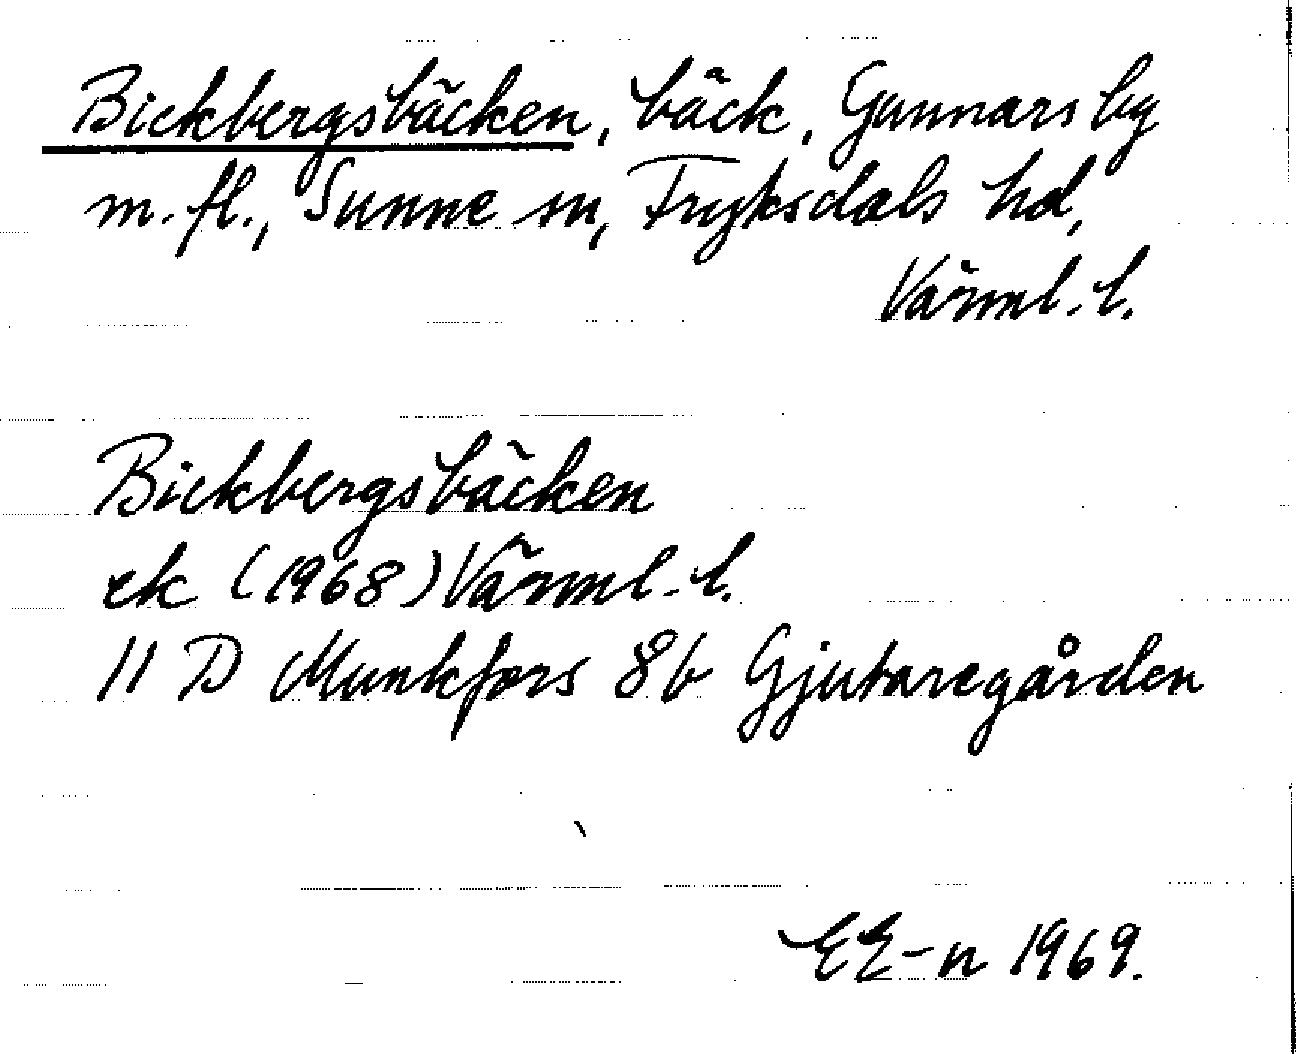 Bickbergsbäcken, bäck, Gunnarsby
m.fl., Sunne sn, Fryksdals hd,
Värml. l.
Bickbergsbäcken
ek (1968) Värml. l.
11 D Munkfors 8b Gjutaregården
EE-n 1969.